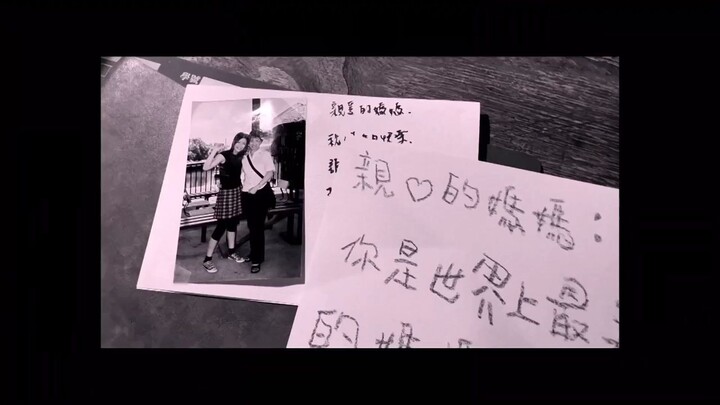 學號
親愛的媽媽
親♡的媽媽:
你是世界上最
的媽